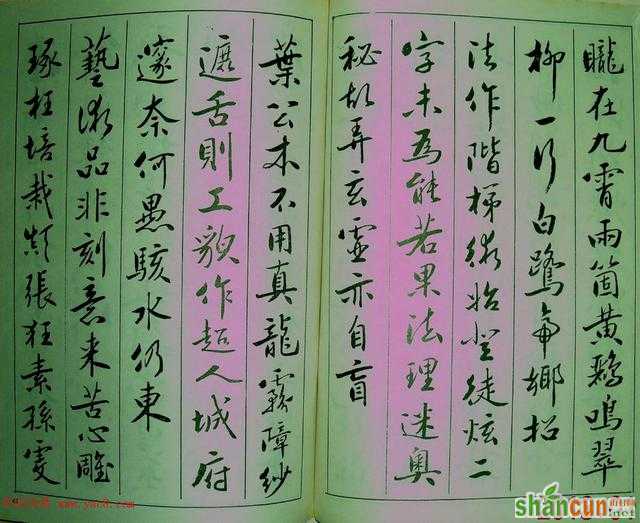 朧在九霄兩箇黃鸝鳴翠
柳一行白鷺帝鄉招
法作階梯術始登徒炫二
字未為能若果法理迷奧
秘故弄玄靈亦自盲
葉公本不用真龍霧障紗
遮舌則工貌作超人城府
邃奈何愚駭水仍東
藝術品非刻意來苦心雕
琢枉培栽顛張狂素孫雯
shancun
.net